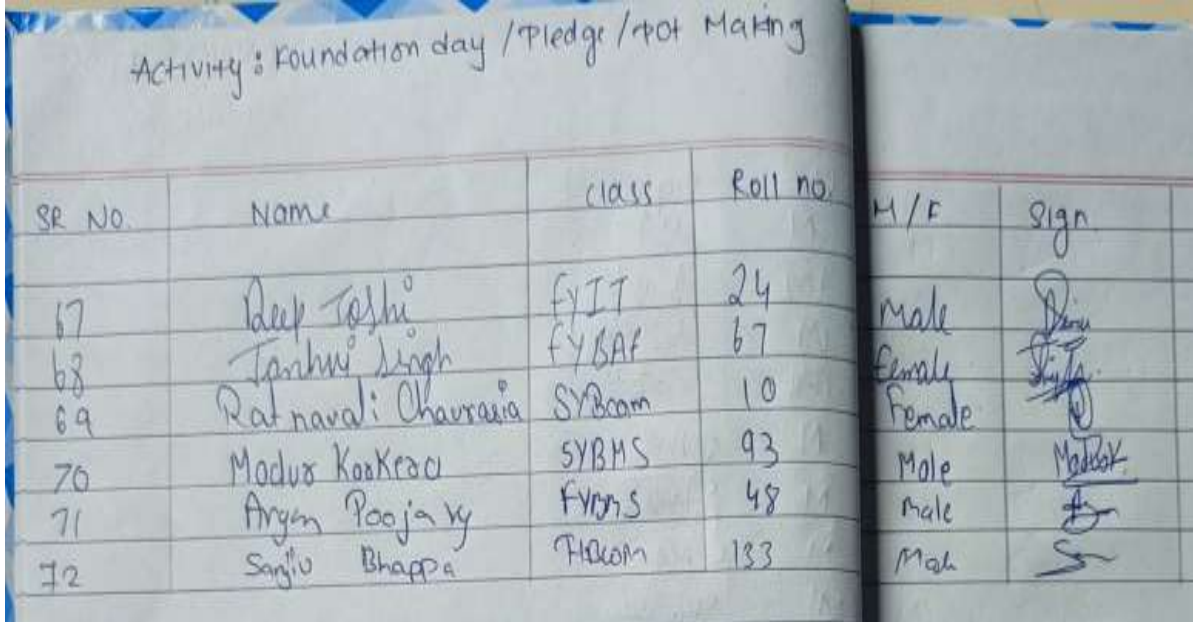 Activity : Foundation day / Pledge / Pot Making
SR NO. Name class Roll no. M/F Sign
67 Deep Joshi FYIT 24 Male
68 Tanhvi Singh FYBAF 67 Female
69 Ratnavali Chaurasia SYBcom 10 Female
70 SYBMS 93 Male
71 Poojary FYBMS 48 Male
72 Bhappa 133